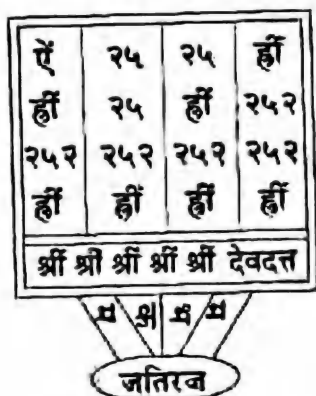 ऐं २५ २५ ह्रीं
ह्रीं २५ ह्रीं २५२
२५२ २५२ २५२ २५२
ह्रीं ह्रीं ह्रीं ह्रीं
श्रीं श्रीं श्रीं श्रीं श्रीं देवदत्त